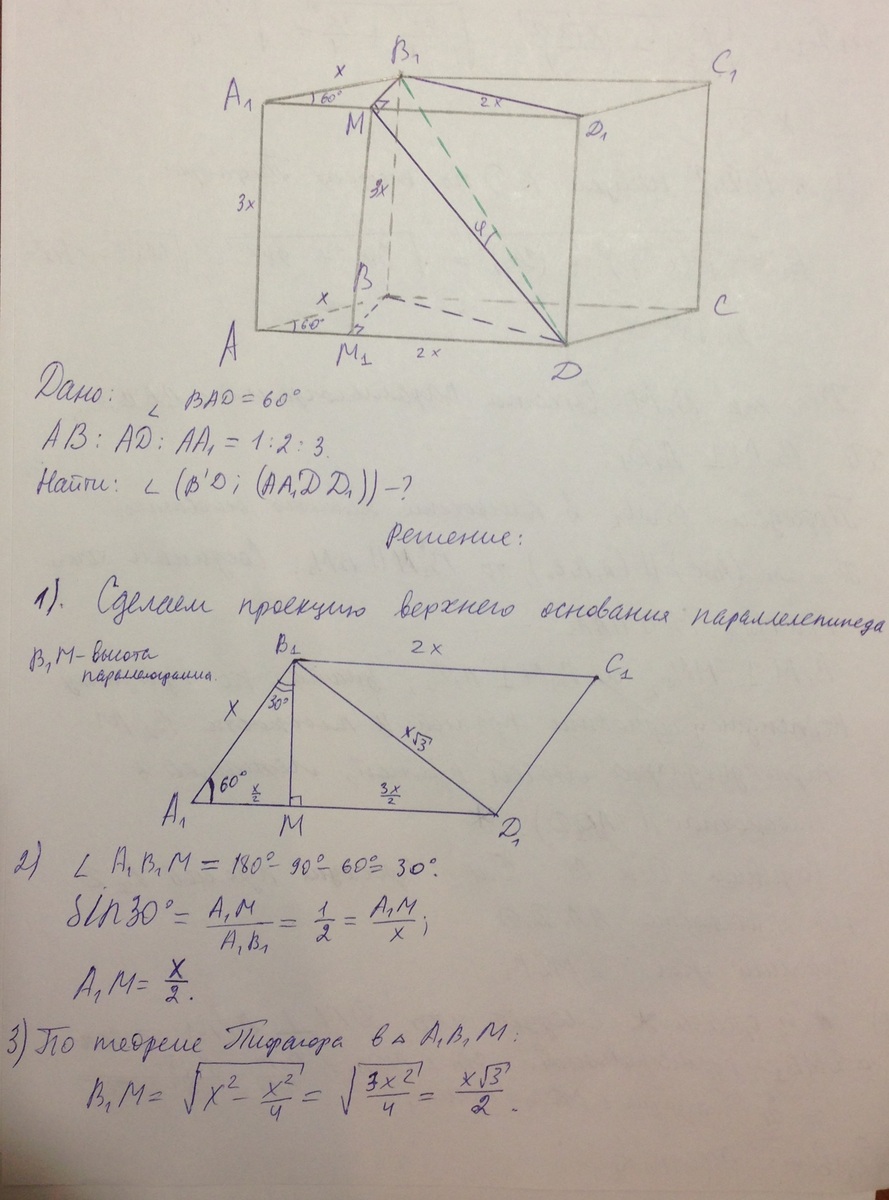 B₁
C₁
x
A₁
60°
2x
M
D₁
3x
3x
φ
B
x
C
A
60°
M₁
2x
D
Дано: ∠ BAD = 60°
AB : AD : AA₁ = 1 : 2 : 3.
Найти: ∠ (B'D ; (AA₁DD₁)) - ?
Решение:
1). Сделаем проекцию верхнего основания параллелепипеда
B₁M - высота
параллелограмма.
B₁
2x
C₁
x
30°
x√3
60°
x/2
3x/2
A₁
M
D₁
2) ∠ A₁B₁M = 180° - 90° - 60° = 30°.
Sin30° = A₁M/A₁B₁ = 1/2 = A₁M/x ;
A₁M = x/2.
3) По теореме Пифагора в △ A₁B₁M:
B₁M = √(x² - x²/4) = √(3x²/4) = x√3/2.